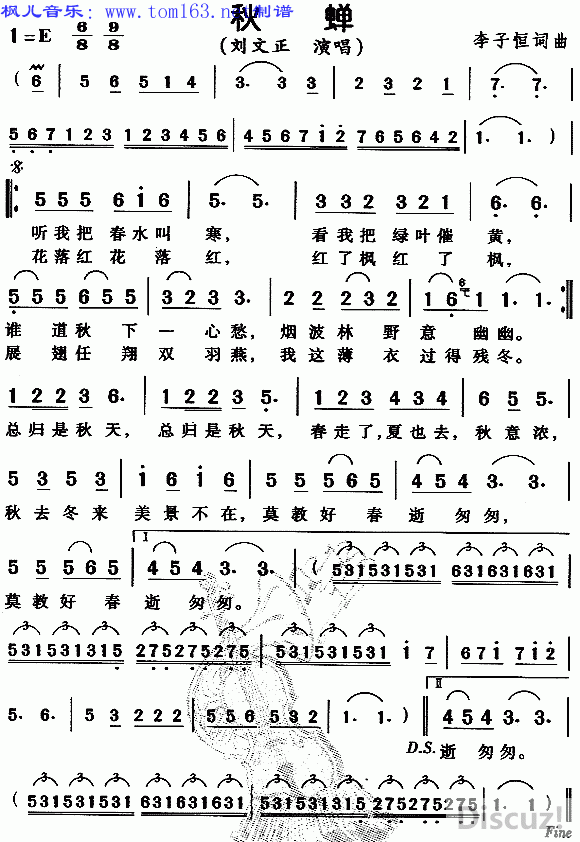 枫儿音乐：www.tom163.net制谱
秋 蝉
1=E 6/8 9/8
(刘文正 演唱)
李子恒词曲
( 6 | 5 6 5 1 4 | 3. 3. | 2 3 2 1 | 7. 7. |
5 6 7 1 2 3 | 1 2 3 4 5 6 | 4 5 6 7 1 2 | 7 6 5 6 4 2 | 1. 1. ) |
5 5 5 6 1 6 | 5. 5. | 3 3 2 3 2 1 | 6. 6. |
听我把 春水叫 寒， 看我把 绿叶催 黄，
花落红 花 落 红， 红了枫 红 了 枫，
5 5 5 5 6 5 5 | 3 2 3 3. | 2 2 2 2 2 | 1 6 1 1. 1. :|
谁 道秋 下 一 心愁， 烟波林 野意 幽幽。
展 翅任 翔 双 羽燕， 我这薄 衣 过得残冬。
1 2 2 3 6. | 1 2 2 3 5. | 1 2 3 4 3 4 | 6 5 5. |
总归是秋 天， 总归是秋 天， 春走了，夏也去， 秋意浓，
5 3 5 3 | 1 6 1 6 | 5 5 5 6 5 | 4 5 4 3. 3. |
秋去冬来 美景不在， 莫教好 春 逝 匆匆，
I
5 5 5 6 5 | 4 5 4 3. 3. | ( 531531531 631631631 |
莫教好 春 逝 匆匆。
531531531 275275275 | 531531531 1 7 | 6 7 1 7 1 2 |
II
5. 6. | 5 5 6 3 2 | 5 5 6 5 3 2 | 1. 1. ) || 4 5 4 3. 3. |
D.S. 逝 匆匆。
( 531531531 631631631 | 531531531 275275275 | 1. 1. )
Discuz!
Fine